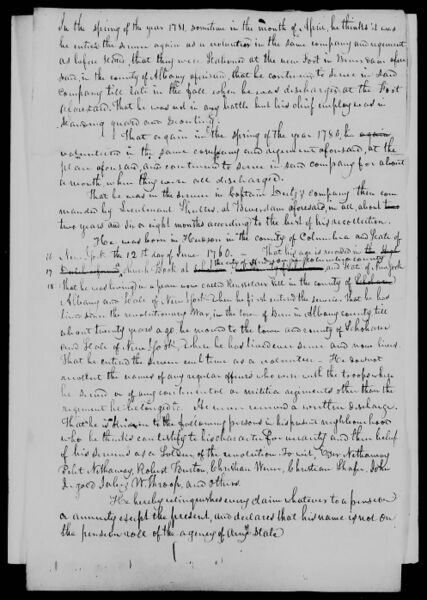 In the spring of the year 1781, sometime in the month of April, he thinks it was
he entered the service again as a volunteer in the same company and regiment
as before stated, that they were stationed at the new Fort in Beaverdam afore
said, in the county of Albany aforesaid, that he continued to serve in said
company till late in the fall when he was discharged at the Fort
aforesaid. That he was not in any battle but his chief employ was in
standing guard and scouting.
That again in the spring of the year 1780, he again
volunteered in the same company and regiment aforesaid, at the
place aforesaid, and continued to serve in said company for about
month when they were all discharged.
That he was in the service in Captain company then com
manded by Lieutenant at Beverdam aforesaid, in all about two
two years and six or eight months according to the best of his recollection.
He was born in Hudson in the county of Columbia and State of
16 New York the 12th day of June 1760. – That his age is recorded in the
17 church Book at and State of New York
18 that he was living on a farm now called Rensselaer in the county of
Albany and State of New York when he first entered the service that he has
lived since the revolutionary War, in the town of Bern in Albany county till
about twenty years ago, he moved to the town and county of Schoharie
and State of New York, where he has lived ever since and now lives.
That he entered the service each time as a volunteer – He does not
recollect the names of any regular officers who were with the troops where
he served or of any continental or militia regiments other than the
regiment he belonged to. He never received a written discharge.
That he is known to the following persons in his present neighbourhood
who he thinks can testify to his character for veracity and their belief
of his services as a soldier of the revolution. To wit,
Robert Burton, Christian Christian John
W. Throop, and others.
He hereby relinquishes every claim whatever to a pension
or annuity except the present, and declares that his name is not on
the pension roll of the agency of any State